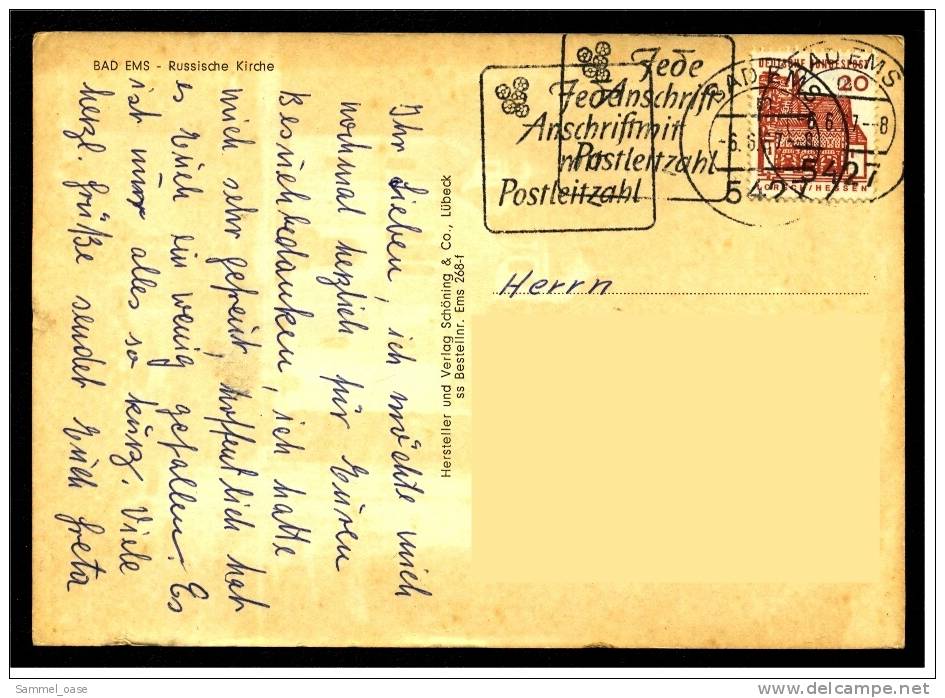 BAD EMS - Russische Kirche
Ihr Lieben, ich möchte mich
nochmal hezlich für Euren
Besuch bedanken, ich hatte
mich sehr gefreut, hoffentlich hat
es Euch ein wenig gefallen. Es
ist nur alles so kurz. Viele
herzl. Grüße sendet Euch Greta
Hersteller und Verlag Schöning & Co., Lübeck
ss Bestellnr. Ems 268-f
Jede
Anschrift
mit
Postleitzahl
Jede
Anschrift
mit
Postleitzahl
BAD EMS
5427
BAD EMS
5427
DEUTSCHE BUNDESPOST
20
LORSCH/HESSEN
Herrn
Sammel_oase
www.delcampe.net